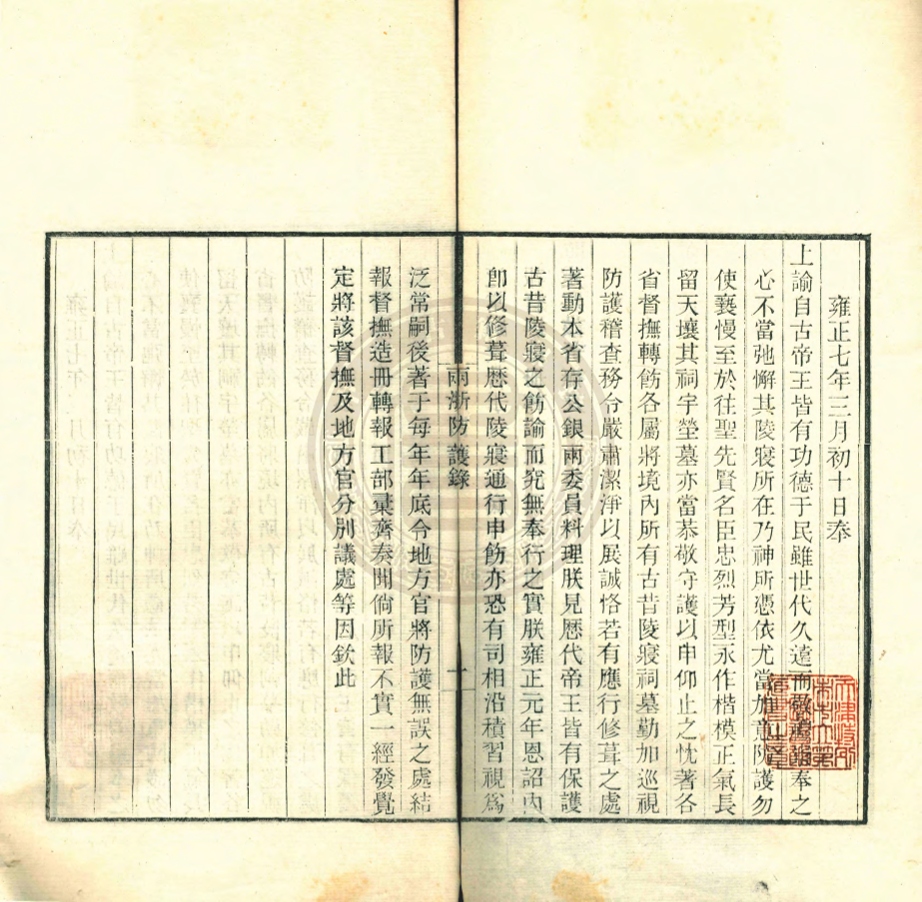 雍正七年三月初十日奉
上諭自古帝王皆有功德于民雖世代久遠而奉之
心不當弛懈其陵寢所在乃神所憑依尤當加意防護勿
使褻慢至於往聖先賢名臣忠烈芳型永作楷模正氣長
留天壤其祠宇塋墓亦當恭敬守護以申仰止之忱著各
省督撫轉飭各屬將境內所有古昔陵寢祠墓勤加巡視
防護稽查務令嚴肅潔淨以展誠恪若有應行修葺之處
著動本省存公銀兩委員料理朕見歷代帝王皆有保護
古昔陵寢之飭諭而究無奉行之實朕雍正元年恩詔內
卽以修葺歷代陵寢通行申飭亦恐有司相沿積習視爲
兩浙防護錄
一
泛常嗣後著于每年年底令地方官將防護無誤之處結
報督撫造冊轉報工部彙齊奏聞倘所報不實一經發覺
定將該督撫及地方官分別議處等因欽此